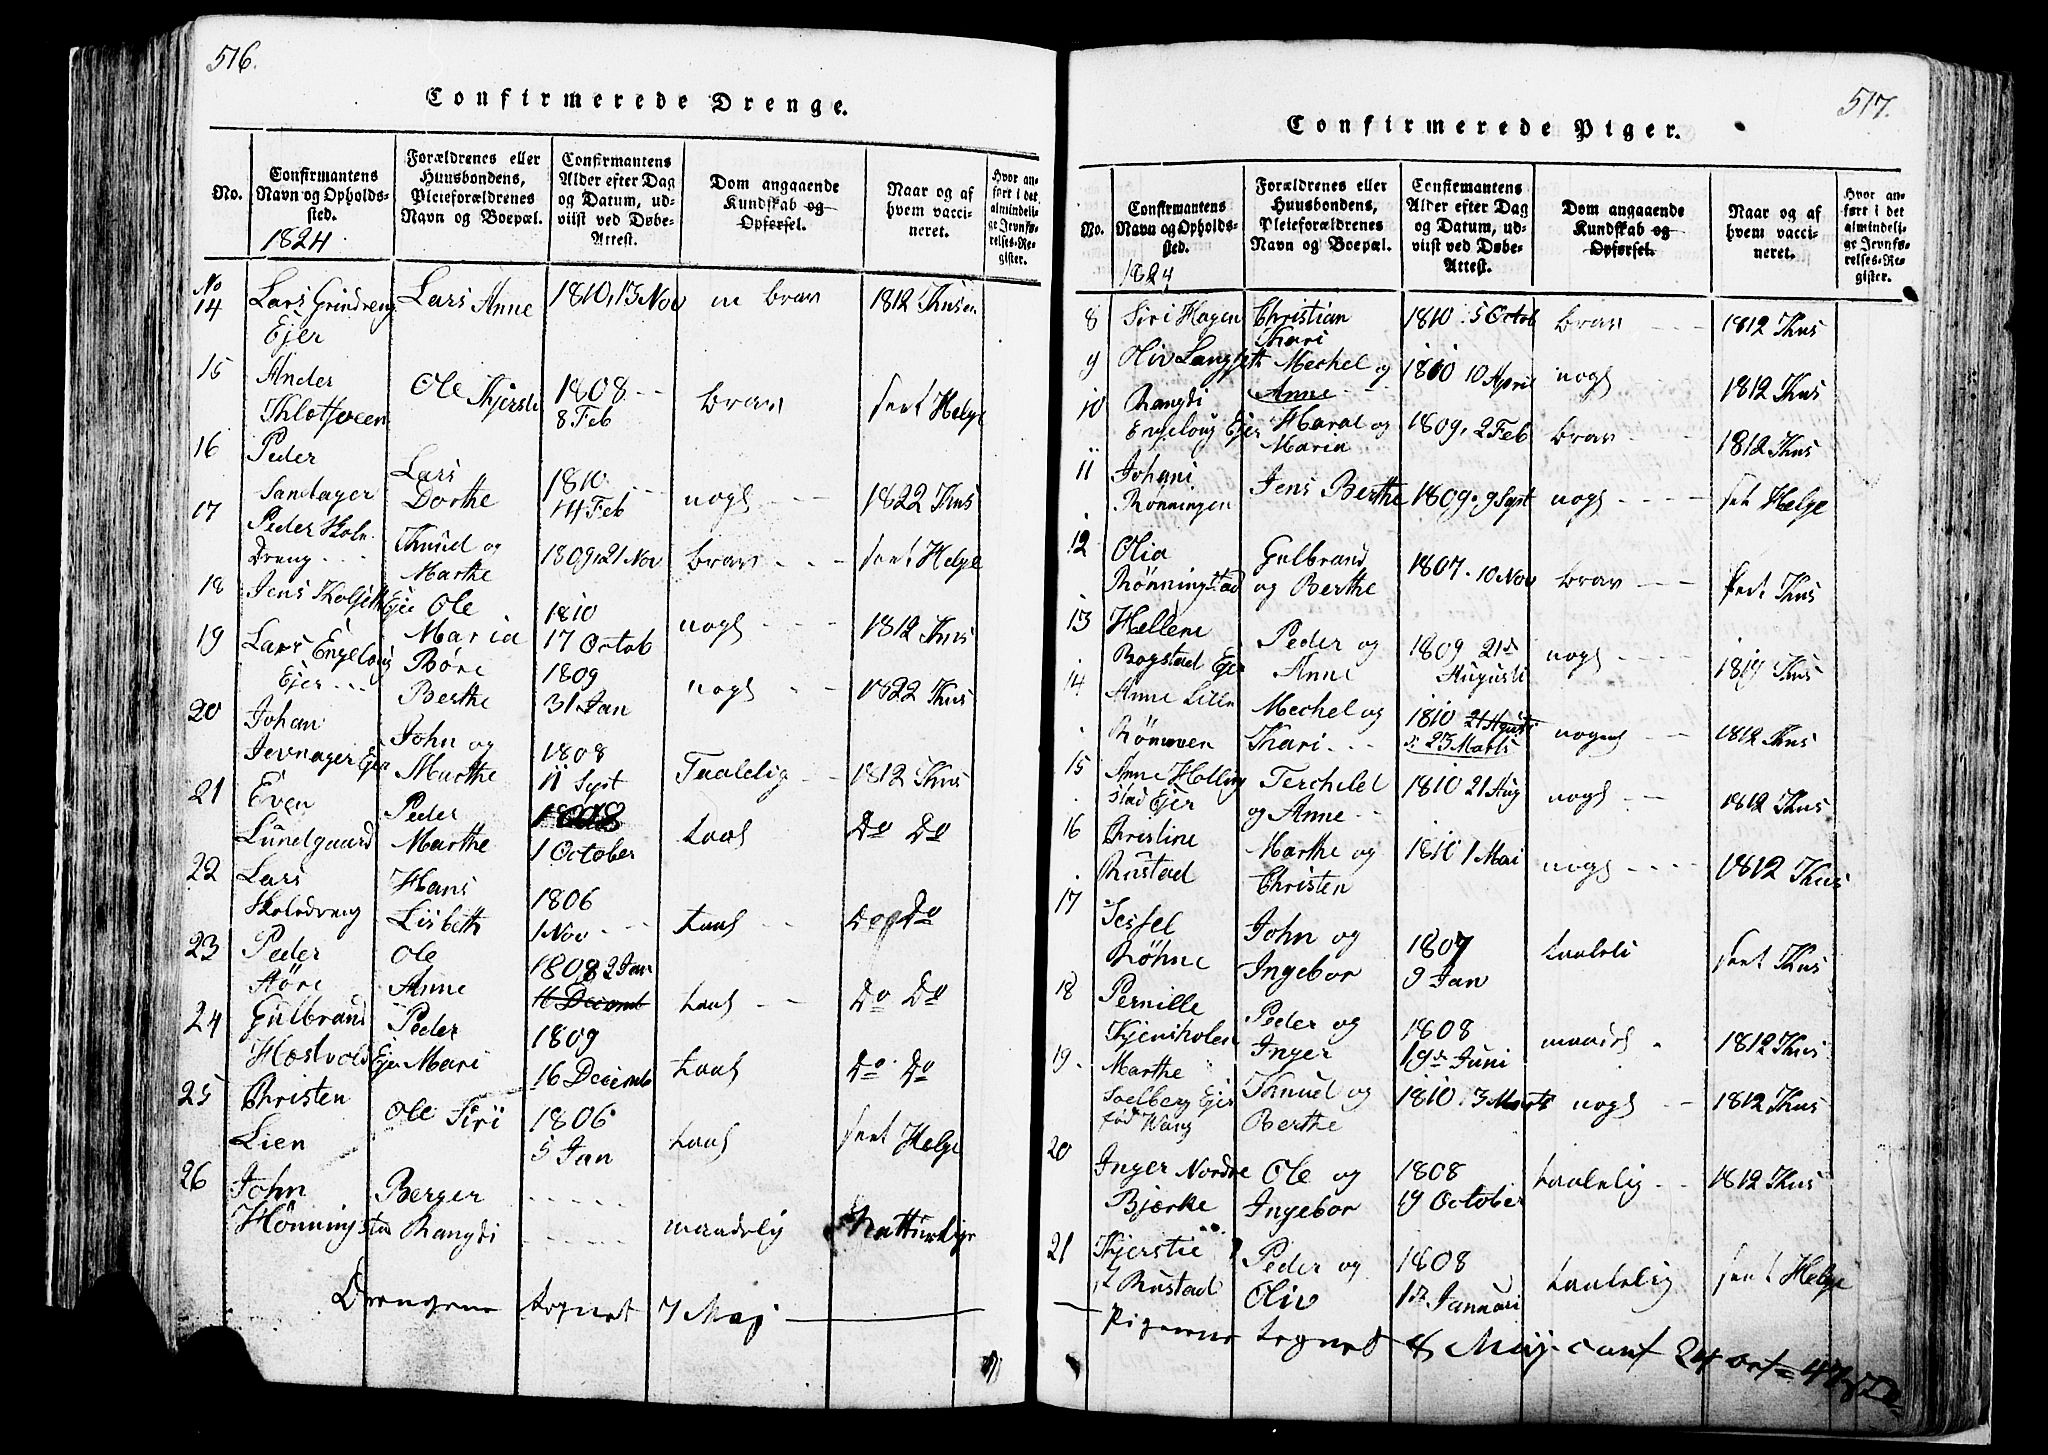 516.
Confirmerede Drenge.
No.
Confirmantens Navn og Opholdssted.
1824
Forældrenes eller Huusbondens, Pleieforældrenes Navn og Boepæl.
Confirmantens Alder efter Dag og Datum, udviist ved Døbe-Attest.
Dom angaaende Kundskab og Opførsel.
Naar og af hvem vaccineret.
Hvor anført i det almindelige Jevnførelses-Register.
No
14 Lars Grindreng Ejer Lars Anne 1810, 13 Nov m brav 1812 Thusen
15 Ander Ole Kjersti 1808 8 Feb brav seet Helge
16 Peder Sandager Lars Dorthe 1810 14 Feb nogl 1822 Thus
17 Peder Skole Dreng Knud og Marthe 1809, 21 Nov brav seet Helge
18 Jens Ejer Ole Maria 1810 17 Octob nogl 1812 Thus
19 Lars Engeloug Ejer Böre Berthe 1809 31 Jan nogl 1822 Thus
20 Johan Jevnager Ejer John og Marthe 1808 11 Sept Taalelig 1812 Thus
21 Even Lundgaard Peder Marthe 1808 1 October taal Do Do
22 Lars Skoledreng Hans Lisbeth 1806 1 Nov taal Do Do
23 Peder Ole Anne 1808 2 Jan 11 Decemb taal Do Do
24 Gulbrand Hoelvold Ejer Peder Mari 1809 16 Decemb taal Do Do
25 Christen Lien Ole Siri 1806 5 Jan taal seet Helge
26 John Hönningstad Berger Rangdi maadelig Natturlige
Drengene tegnet 7 Maj
517.
Confirmerede Piger.
No.
Confirmantens Navn og Opholdssted.
1824
Forældrenes eller Huusbondens, Pleieforældrenes Navn og Boepæl.
Confirmantens Alder efter Dag og Datum, udviist ved Døbe-Attest.
Dom angaaende Kundskab og Opførsel.
Naar og af hvem vaccineret.
Hvor anført i det almindelige Jevnførelses-Register.
8 Siri Hagen Christian Kari 1810 5 Octob brav 1812 Thus
9 Oliv Langseth Mechel og Anne 1810 10 April nogl 1812 Thus
10 Rangdi Engeloug Ejer Haral og Maria 1809, 2 Feb brav 1812 Thus
11 Johani Rönningen Jens Berthe 1809. 9 Sept nogl set Helge
12 Olia Rönningstad Gulbrand og Berthe 1807. 10 Nov brav seet Thus
13 Hellene Bogstad Ejer Peder og Anne 1809 21de Augusti nogl 1819 Thus
14 Anne Lille Mechel og Kari 1810 21 Agusti d: 23 Marts nogenl 1812 Thus
15 Anne Hollingstad Ejer Terchild og Anne 1810 21 Aug nogl 1812 Thus
16 Christine Rustad Marthe og Christen 1810 1 Mai nogl 1812 Thus
17 Sessel Röhne John og Ingebor 1807 9 Jan taaleli seet Thus
18 Pernille Kjensholen Peder og Inger 1808 19de Juni maadl 1812 Thus
19 Marthe Soelberg Ejer född Wang Knud og Berthe 1810. 3 Marts nogl 1812 Thus
20 Inger Nordre Bjerke Ole og Ingebor 1808 19 October taalelig 1812 Thus
21 Kjerstie Rustad Peder og Oliv 1808 1de Januari taalelig seet Helge
Pigerne tegnet 8 Maj